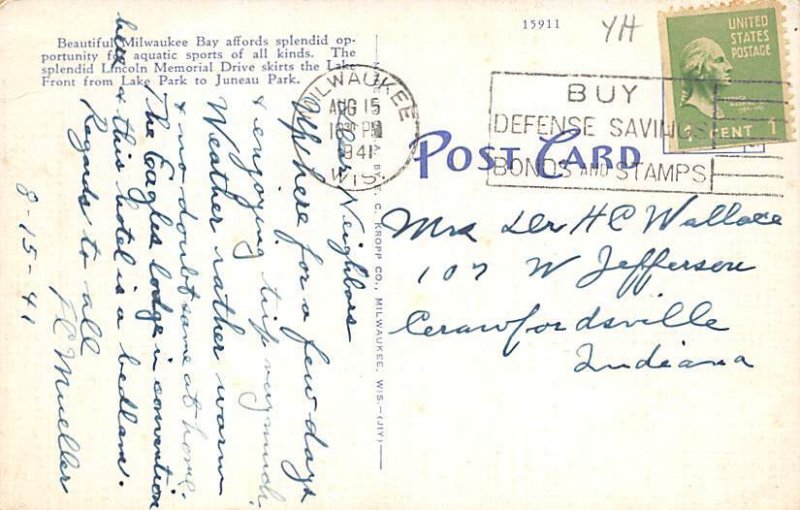 15911
YH
Beautiful Milwaukee Bay affords splendid op-
portunity for aquatic sports of all kinds. The
splendid Lincoln Memorial Drive skirts the Lake
Front from Lake Park to Juneau Park.
MILWAUKEE
AUG 15
1941
WIS.
BUY
DEFENSE SAVINGS
BONDS AND STAMPS
UNITED
STATES
POSTAGE
1 CENT 1
POST CARD
Mrs Dr H C Wallace
107 W Jefferson
Crawfordsville
Indiana
Neighbors
here for a few days
& enjoying trip very much.
Weather rather warm
& no doubt same at home.
The Eagles lodge in convention
here & this hotel is a bedlam.
Regards to all
J C Mueller
8-15-41
C. KROPP CO., MILWAUKEE, WIS.—(JIY)